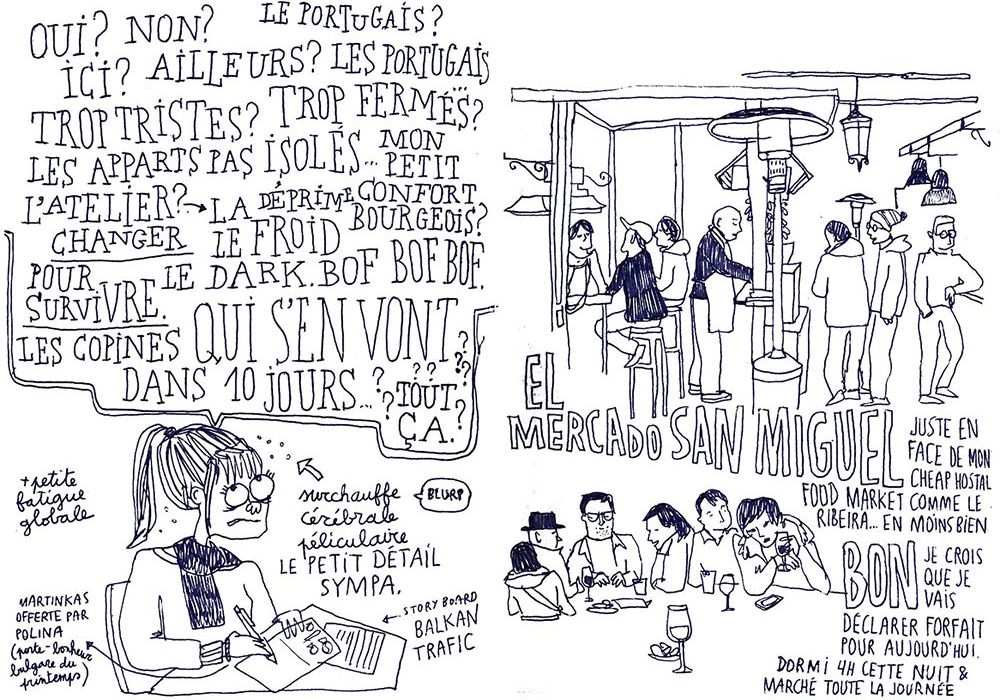 OUI? NON? LE PORTUGAIS?
ICI? AILLEURS? LES PORTUGAIS
TROP TRISTES? TROP FERMÉS?...
LES APPARTS PAS ISOLÉS... MON PETIT
CONFORT BOURGEOIS?
L'ATELIER? → LA DÉPRIME
CHANGER LE FROID
POUR LE DARK. BOF BOF BOF.
SURVIVRE.
LES COPINES QUI S'EN VONT
DANS 10 JOURS...? TOUT
ÇA.
? ? ? ? ? ? ?
+ petite
fatigue
globale
surchauffe
cérébrale
péliculaire
LE PETIT DÉTAIL
SYMPA.
BLURP
MARTINKAS
OFFERTE PAR
POLINA
(porte-bonheur
bulgare du
printemps)
STORY BOARD
BALKAN
TRAFIC
EL
MERCADO SAN MIGUEL
JUSTE EN
FACE DE MON
CHEAP HOSTAL
FOOD MARKET COMME LE
RIBEIRA... EN MOINS BIEN
BON
JE CROIS
QUE JE
VAIS
DÉCLARER FORFAIT
POUR AUJOURD'HUI.
DORMI 4H CETTE NUIT &
MARCHÉ TOUTE LA JOURNÉE